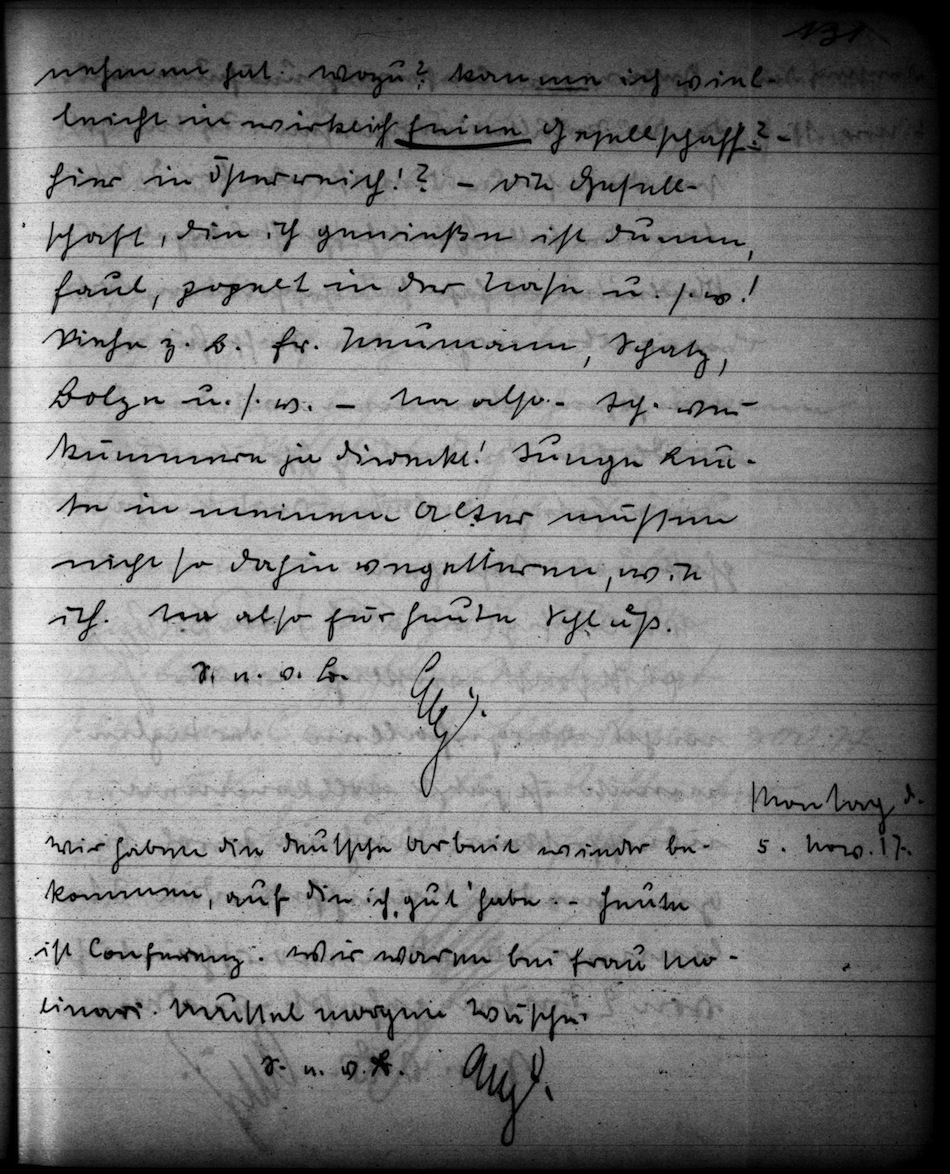 131
nehmen hat. wozu? kan me ich viel-
leicht in wirklich feine Gesellschaft? -
hier in Österreich!? - die Gesell-
schaft, die ich genieße ist dumm,
faul, popelt in der Nase u. s. w.!
Siehe z. B. Fr. Neumann, Schatz,
Bolze u. s. w. - Na also - Ich ver-
kümmere ja direckt! Junge Leu-
te in meinem Alter müssen
nicht so dahin vegettieren, wie
ich. Na also für heute Schluß.
S. u. v. B.
Montag d.
5. Nov. 17.
Wir haben die deutsche Arbeit wieder be-
kommen, auf die ich "gut" habe. - Heute
ist Conferenz. Wir waren bei Frau Mo-
linari. Muttel morgen Wäsche.
S. u. v. B.